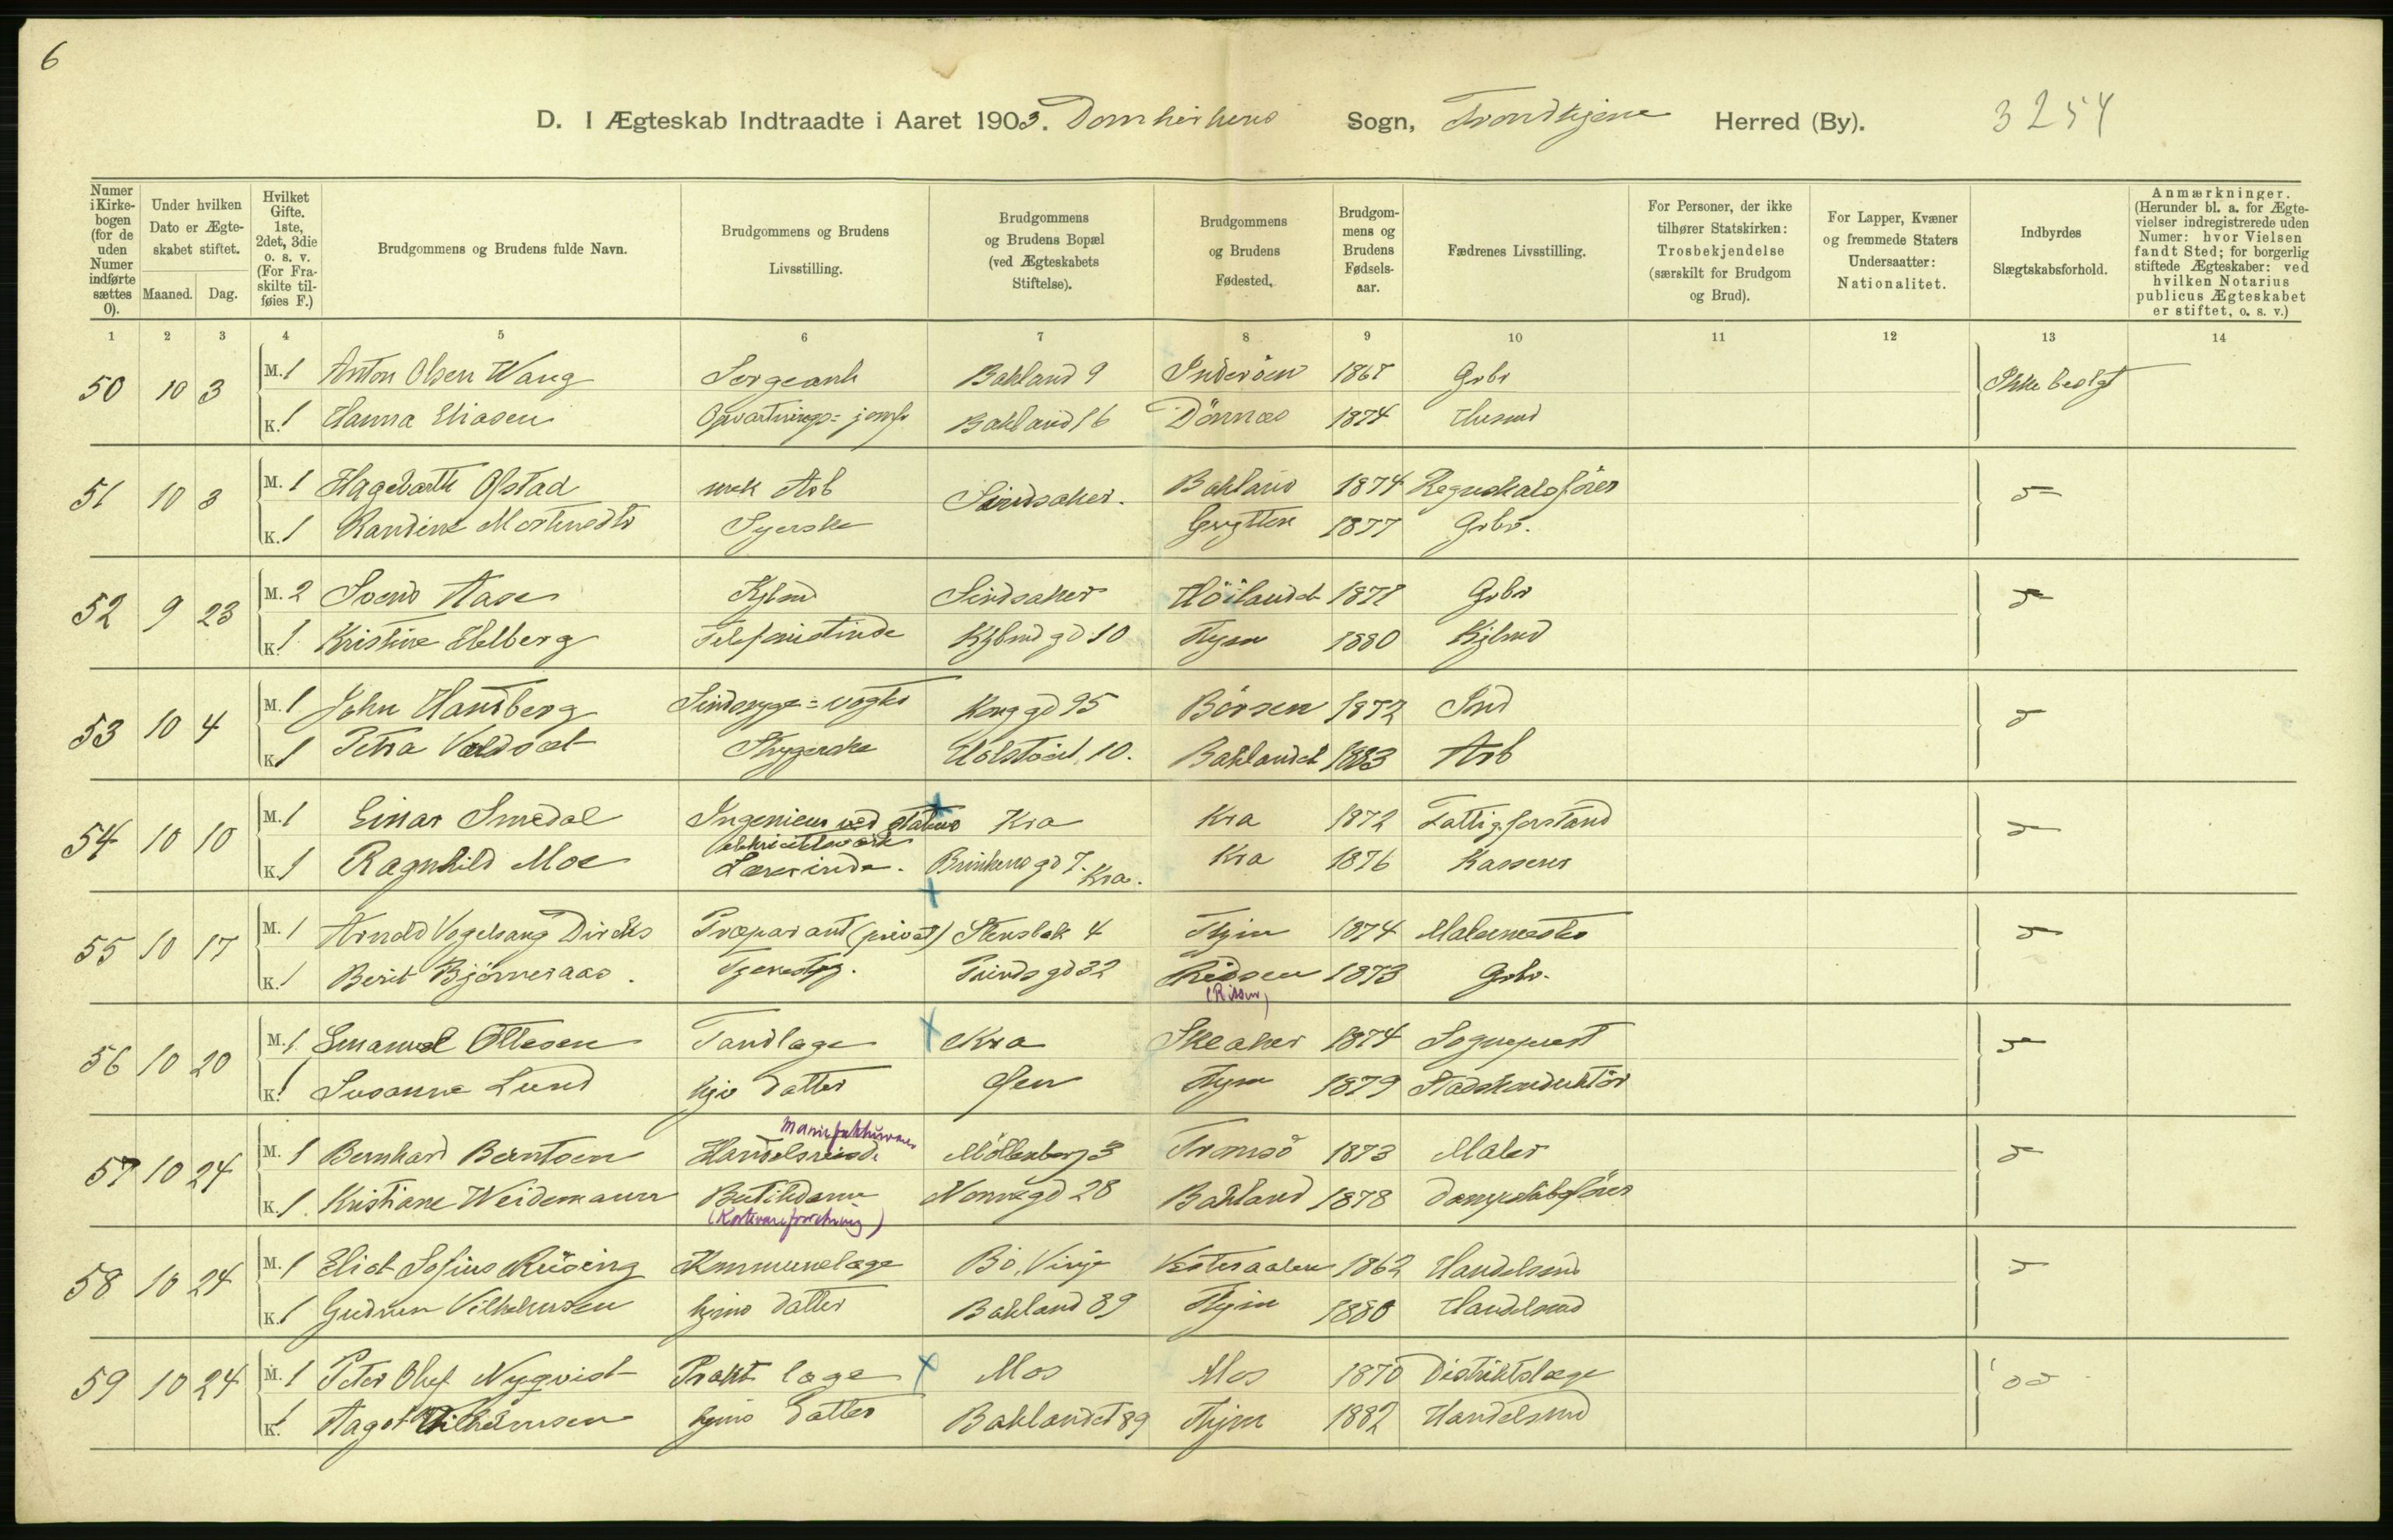 6
D. I Ægteskab Indtraadte i Aaret 1903. Domkirkens Sogn, Trondhjems Herred (By). 3254
Numer i Kirkebogen (for de uden Numer indførte sættes 0).
Under hvilken Dato er Ægteskabet stiftet.
Maaned. Dag.
Hvilket Gifte. 1ste, 2det, 3die o. s. v. (For Fraskilte tilføies F.)
Brudgommens og Brudens fulde Navn.
Brudgommens og Brudens Livsstilling.
Brudgommens og Brudens Bopæl (ved Ægteskabets Stiftelse).
Brudgommens og Brudens Fødested.
Brudgommens og Brudens Fødselsaar.
Fædrenes Livsstilling.
For Personer, der ikke tilhører Statskirken: Trosbekjendelse (særskilt for Brudgom og Brud).
For Lapper, Kvæner og fremmede Staters Undersaatter: Nationalitet.
Indbyrdes Slægtskabsforhold.
Anmærkninger. (Herunder bl. a. for Ægtevielser indregistrerede uden Numer: hvor Vielsen fandt Sted; for borgerlig stiftede Ægteskaber: ved hvilken Notarius publicus Ægteskabet er stiftet, o. s. v.)
1 2 3 4 5 6 7 8 9 10 11 12 13 14
50 10 3 M. 1 Anton Olsen Wang Sergeant Bakland 9 Inderöen 1867 Gbr Ikke beslgt
K. 1 Hanna Eliasen Opvartnings=jomfr Bakland 16 Dönnæs 1874 Husmd
51 10 3 M. 1 Hagebarth Ofstad mek Arb Sindsaker. Bakland 1874 Regnskabsförer
K. 1 Randine Mortensdtr Syerske Grytten 1877 Gbr.
52 9 23 M. 2 Svend Aase Kjbmd Sindsaker Höilandet 1871 Gbr
K. 1 Kristine Helberg Telefonistinde Kjbmd gd 10 Thjem 1880 Kjbmd
53 10 4 M. 1 John Handberg Sindssyge=vogter Kong gd 95 Börsen 1872 Smd
K. 1 Petra Voldsæt Strygerske Ulstadl. 10. Baklandet 1883 Arb
54 10 10 M. 1 Einar Smedal Ingenieur ved statens Kra Kra 1872 Fattigforstand
K. 1 Ragnhild Moe Lærerinde. Brinkens gd 7. Kra. Kra 1876 Kasserer
55 10 17 M. 1 Arnold Vogelsang Dircks Præparant (privat) Stensbak 4 Thjem 1874 Malermester
K. 1 Berit Björneraas. Tjenestpg. Prinds gd 32 Ridsen 1873 Gbr.
(Rissen)
56 10 20 M. 1 Emanuel Ottesen Tandlæge Kra Skeaker 1874 Sogneprest
K. 1 Susanna Lund hjv datter Øen Thjem 1879 Stadskonduktör
Manufakturvarer
57 10 24 M. 1 Bernhard Berntsen Handelsreisde Möllenberg 3 Tromsö 1873 Maler
K. 1 Kristiane Weidemann Butikdame Nonnegd 28 Bakland 1878 Dampskibsförer
(Kortvareforretning)
58 10 24 M. 1 Eliat Sofius Rüsing Kommunelæge Bö, Vinje Vesteraalen 1862 Handelsmd
K. 1 Gudrun Vilhelmsen hjms datter Bakland 89 Thjem 1880 Handelsmd
59 10 24 M. 1 Peter Oluf Nyqvist Prakt læge Mos Mos 1870 Distriktslæge
K. 1 Aagot Vilhelmsen hjms datter Baklandet 89 Thjem 1882 Handelsmd